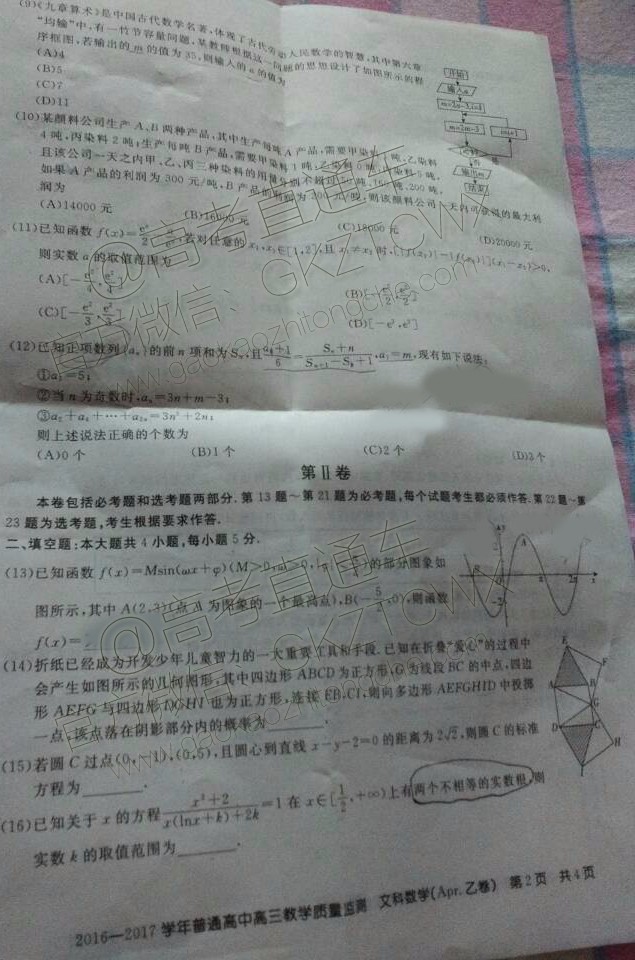 (9)《九章算术》是中国古代数学名著,体现了古代劳动人民数学的智慧,其中第六章
“均输”中,有一竹节容量问题,某教师根据这一问题的思想设计了如图所示的程
序框图,若输出的m的值为35,则输入的a的值为
(A)4
(B)5
(C)7
(D)11
开始
输入a
m=2a-3,i=1
m=2m-3
i=i+1
否
输出m
结束
(10)某颜料公司生产A、B两种产品,其中生产每吨A产品,需要甲染料1吨,乙染料
4吨,丙染料2吨;生产每吨B产品,需要甲染料1吨,乙染料0吨,丙染料5吨,
且该公司一天之内甲、乙、丙三种染料的用量分别不超过50吨,160吨,200吨,
如果A产品的利润为300元/吨,B产品的利润为200元/吨,则该颜料公司一天内可获得的最大利
润为
(A)14000元 (B)16000元 (C)18000元 (D)20000元
(11)已知函数 若对任意的x₁,x₂∈[1,2],且x₁≠x₂时,[|f(x₁)|-|f(x₂)|](x₁-x₂)>0,
则实数a的取值范围为
(A)[-e²/4, e²/4] (B)[-e²/2, e²/2]
(C)[-e²/3, e²/3] (D)[-e²,e²]
(12)已知正项数列{aₙ}的前n项和为Sₙ,且 (aₙ+1)/6=(Sₙ+n)/(Sₙ₊₁-Sₙ+1),a₁=m,现有如下说法:
①a₂=5;
②当n为奇数时,aₙ=3n+m-3;
③a₂+a₄+…+a₂ₙ=3n²+2n;
则上述说法正确的个数为
(A)0个 (B)1个 (C)2个 (D)3个
第Ⅱ卷
本卷包括必考题和选考题两部分.第13题~第21题为必考题,每个试题考生都必须作答.第22题~第
23题为选考题,考生根据要求作答.
二、填空题:本大题共4小题,每小题5分.
(13)已知函数f(x)=Msin(ωx+φ)(M>0,ω>0,|φ|<π/2)的部分图象如
图所示,其中A(2,3)(点A为图象的一个最高点),B(-5/2,0),则函数
f(x)=
(14)折纸已经成为开发少年儿童智力的一大重要工具和手段.已知在折叠“爱心”的过程中
会产生如图所示的几何图形,其中四边形ABCD为正方形,G为线段BC的中点,四边
形AEFG与四边形DGHI也为正方形,连接EB,CI,则向多边形AEFGHID中投掷
一点,该点落在阴影部分内的概率为______.
E
F
A
B
G
D
C
H
I
(15)若圆C过点(0,-1),(0,5),且圆心到直线x-y-2=0的距离为2√2,则圆C的标准
方程为______.
(16)已知关于x的方程(x²+2)/(x(lnx+k)+2k)=1在x∈[1/2,+∞)上有两个不相等的实数根,则
实数k的取值范围为______.
2016—2017学年普通高中高三教学质量监测 文科数学(Apr.乙卷) 第2页 共4页
@高考直通车
官方微信:GKZTCWX
www.gaokaozhitongche.com